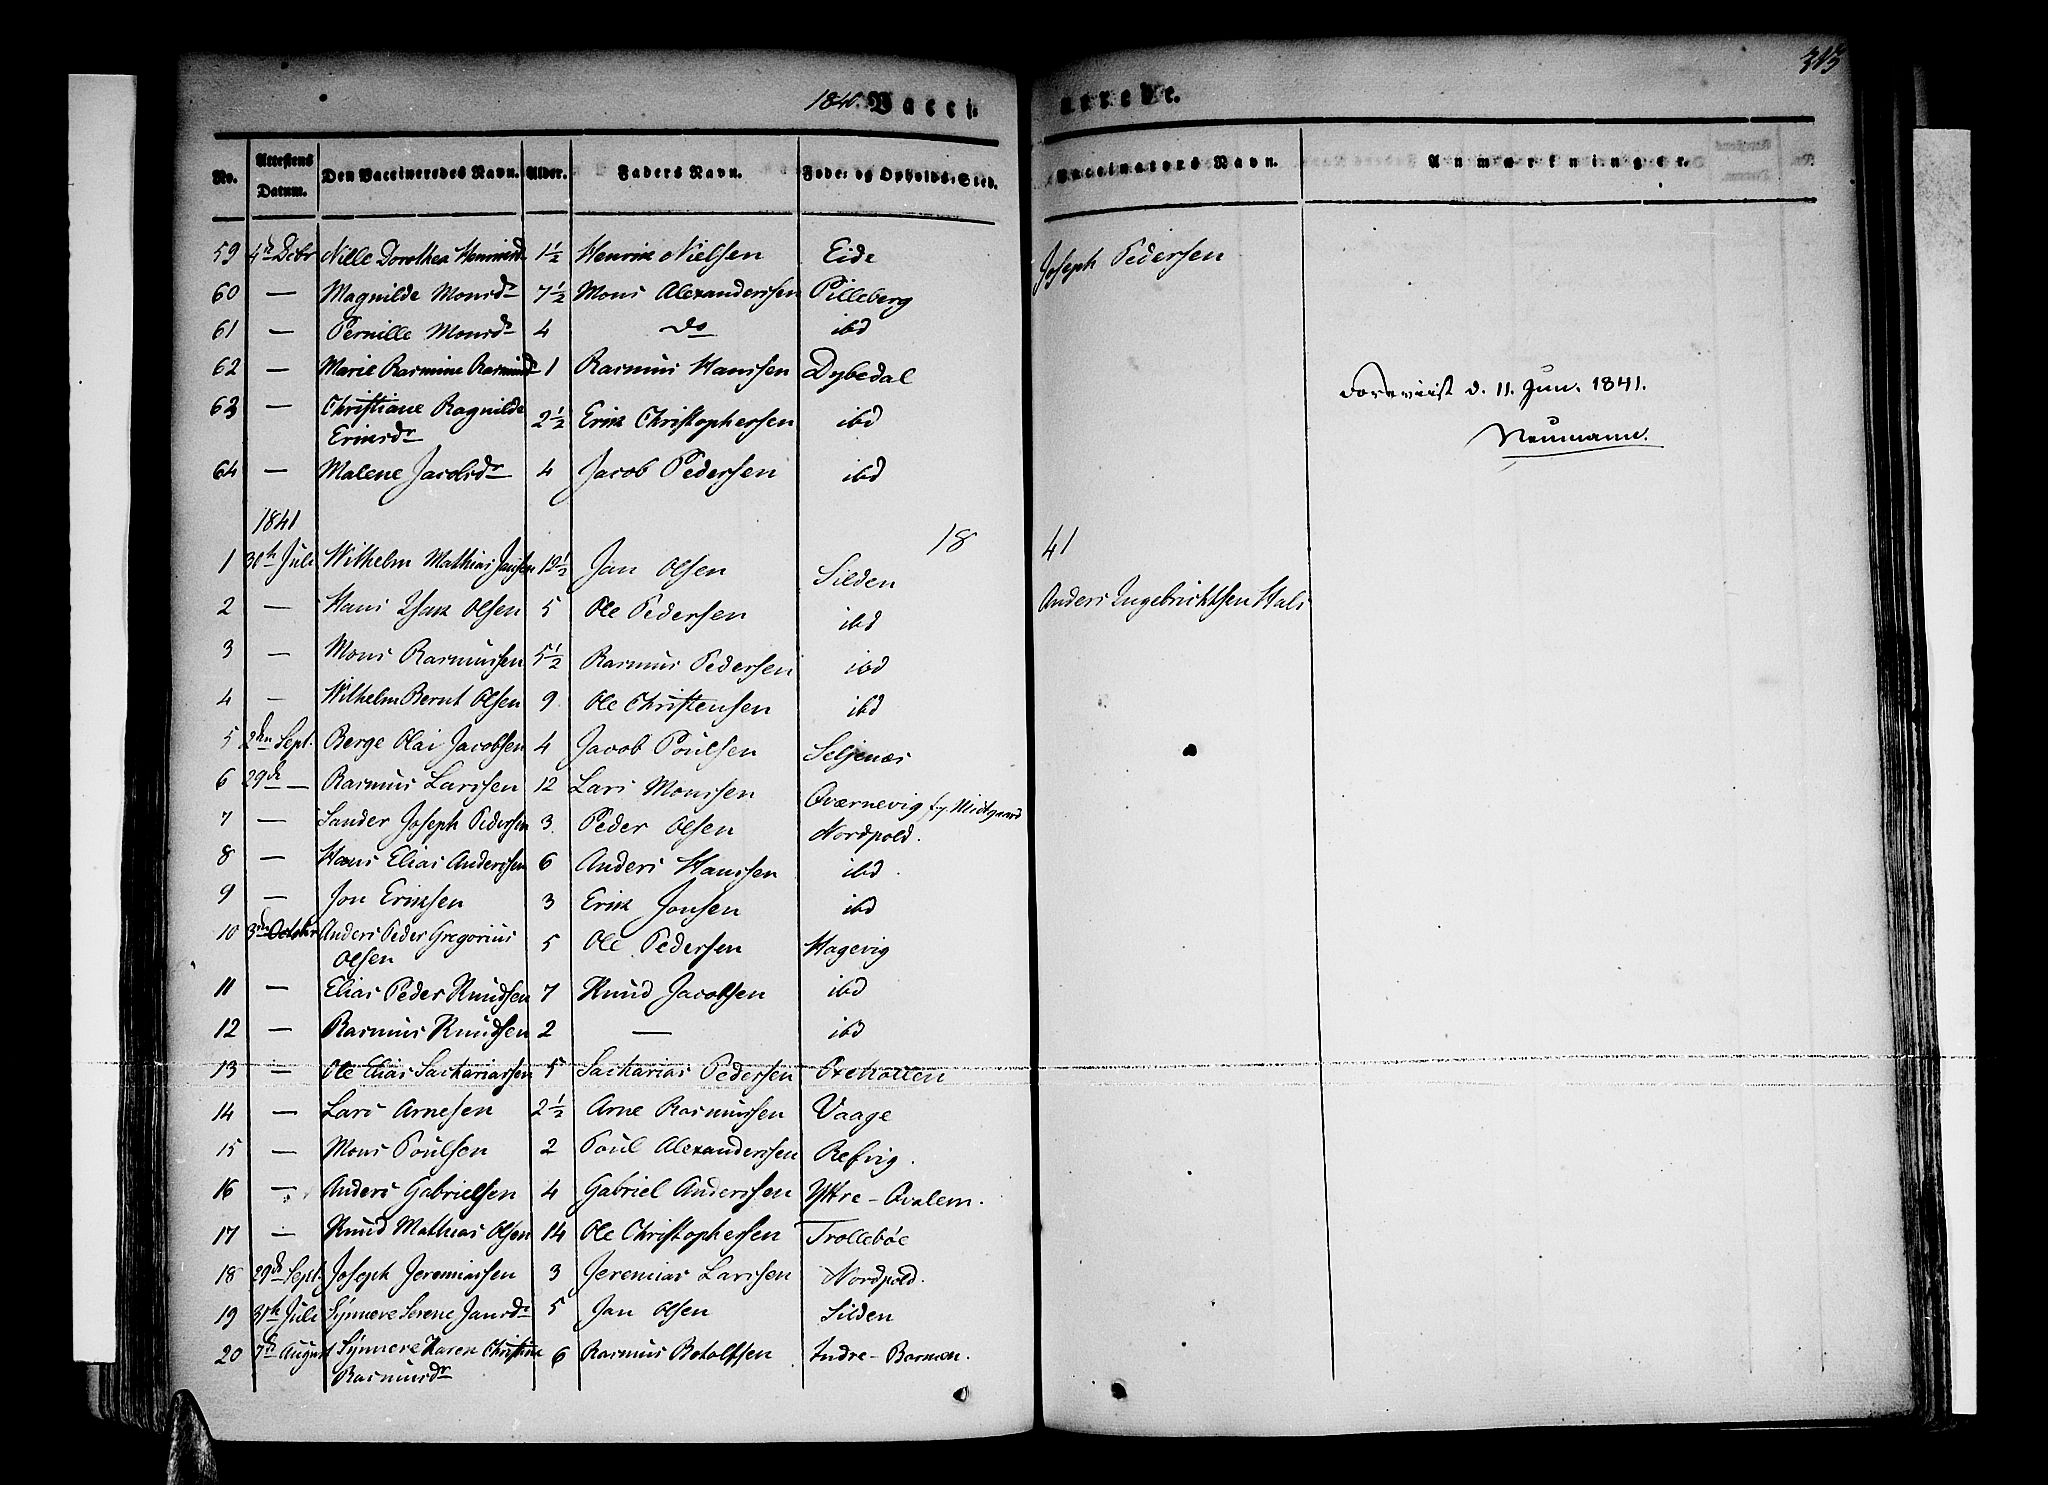 1840. Vaccinerede. 313
No. | Attestens Datum. | Den Vaccineredes Navn. | Alder. | Faders Navn. | Føde- og Opholds-Sted. | Vaccinators Navn. | Anmærkninger.
59 | 4de Decbr | Nille Dorothea Henrichsdr | 1½ | Henrik Nielsen | Eide | Joseph Pedersen
60 | — | Magnilde Monsdr | 7½ | Mons Alexanderssen | Pilleberg
61 | — | Pernille Monsdr | 4 | do | ibd
62 | — | Marie Rasmine Rasmusdr | 1 | Rasmus Hanssen | Dybedal
Forevist d. 11. Jun. 1841.
63 | — | Christiane Ragnilde Eriksdr | 2½ | Erik Christophersen | ibd
Neumann.
64 | — | Malene Jacobsdr | 4 | Jacob Pedersen | ibd
1841
1841
1 | 30th Juli | Wilhelm Mathias Jansen | 12½ | Jan Olsen | Silden
2 | — | Hans Isak Olsen | 5 | Ole Pedersen | ibd | Anders Ingebrichtsen Hals
3 | — | Mons Rasmussen | 5½ | Rasmus Pedersen | ibd
4 | — | Wilhelm Bernt Olsen | 9 | Ole Christensen | ibd
5 | 2den Sept. | Berge Olai Jacobsen | 4 | Jacob Poulsen | Seljenæs
6 | 29de — | Rasmus Larssen | 12 | Lars Monssen | Qværnevig Midtgaard
7 | — | Sander Joseph Pedersen | 3. | Peder Olsen | Nordpold.
8 | — | Hans Elias Anderssen | 6 | Anders Hanssen | ibd.
9 | — | Jon Eriksen | 3 | Erik Jonsen | ibd
10 | 3die October | Anders Peder Gregorius Olsen | 5 | Ole Pedersen | Hagevig
11 | — | Elias Peder Knudsen | 7 | Knud Jacobsen | ibd
12 | — | Rasmus Knudsen | 2 | — | ibd
13 | — | Ole Elias Sachariassen | 5 | Sacharias Pedersen | Oxeholten
14 | — | Lars Arnesen | 2½ | Arne Rasmussen | Vaage
15 | — | Mons Poulsen | 2 | Poul Alexanderssen | Refvig.
16 | — | Anders Gabrielsen | 4 | Gabriel Anderssen | Yttre-Qvalem.
17 | — | Knud Mathias Olsen | 14 | Ole Christophersen | Trollebøe
18 | 29de Sept. | Joseph Jeremiassen | 3 | Jeremias Larssen | Nordpold.
19 | 30th Juli | Synneve Serene Jansdr | 5 | Jan Olsen | Silden
20 | 7de August | Synneve Karen Christine Rasmusdr | 6 | Rasmus Botolfsen | Indre-Barmøn.